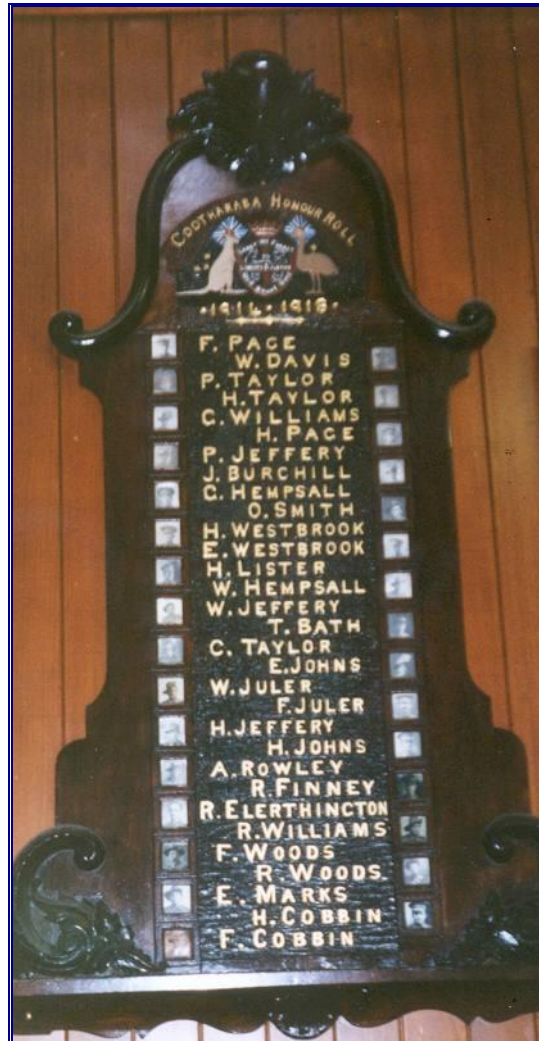 COOTHARABA HONOUR ROLL
1914 · 1918
F. PAGE
W. DAVIS
P. TAYLOR
H. TAYLOR
C. WILLIAMS
H. PAGE
P. JEFFERY
J. BURCHILL
C. HEMPSALL
O. SMITH
H. WESTBROOK
E. WESTBROOK
H. LISTER
W. HEMPSALL
W. JEFFERY
T. BATH
C. TAYLOR
E. JOHNS
W. JULER
F. JULER
H. JEFFERY
H. JOHNS
A. ROWLEY
R. FINNEY
R. ELERTHINGTON
R. WILLIAMS
F. WOODS
R. WOODS
E. MARKS
H. COBBIN
F. COBBIN